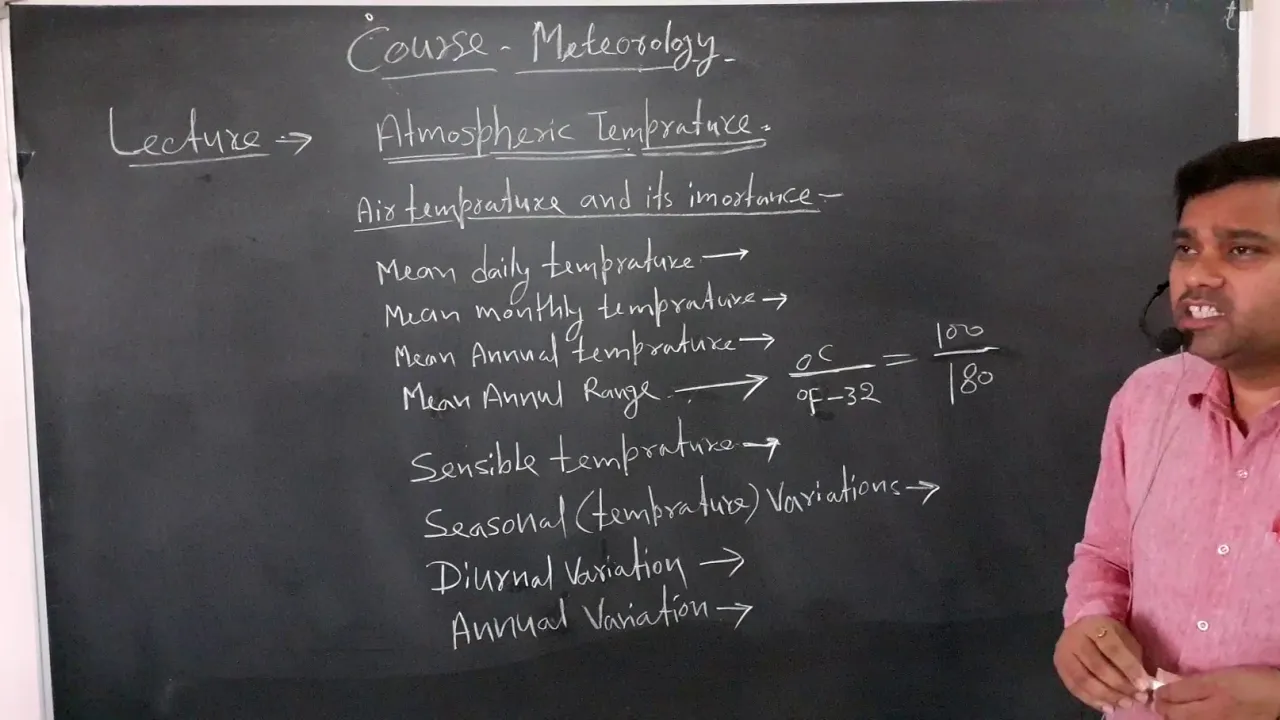 Course - Meteorology -
Lecture → Atmospheric Temprature.
Air temprature and its imortance -
Mean daily temprature →
Mean monthly temprature →
Mean Annual temprature →
Mean Annul Range → oC / oF-32 = 100 / 180
Sensible temprature →
Seasonal (temprature) Variations →
Diurnal Variation →
Annual Variation →
t